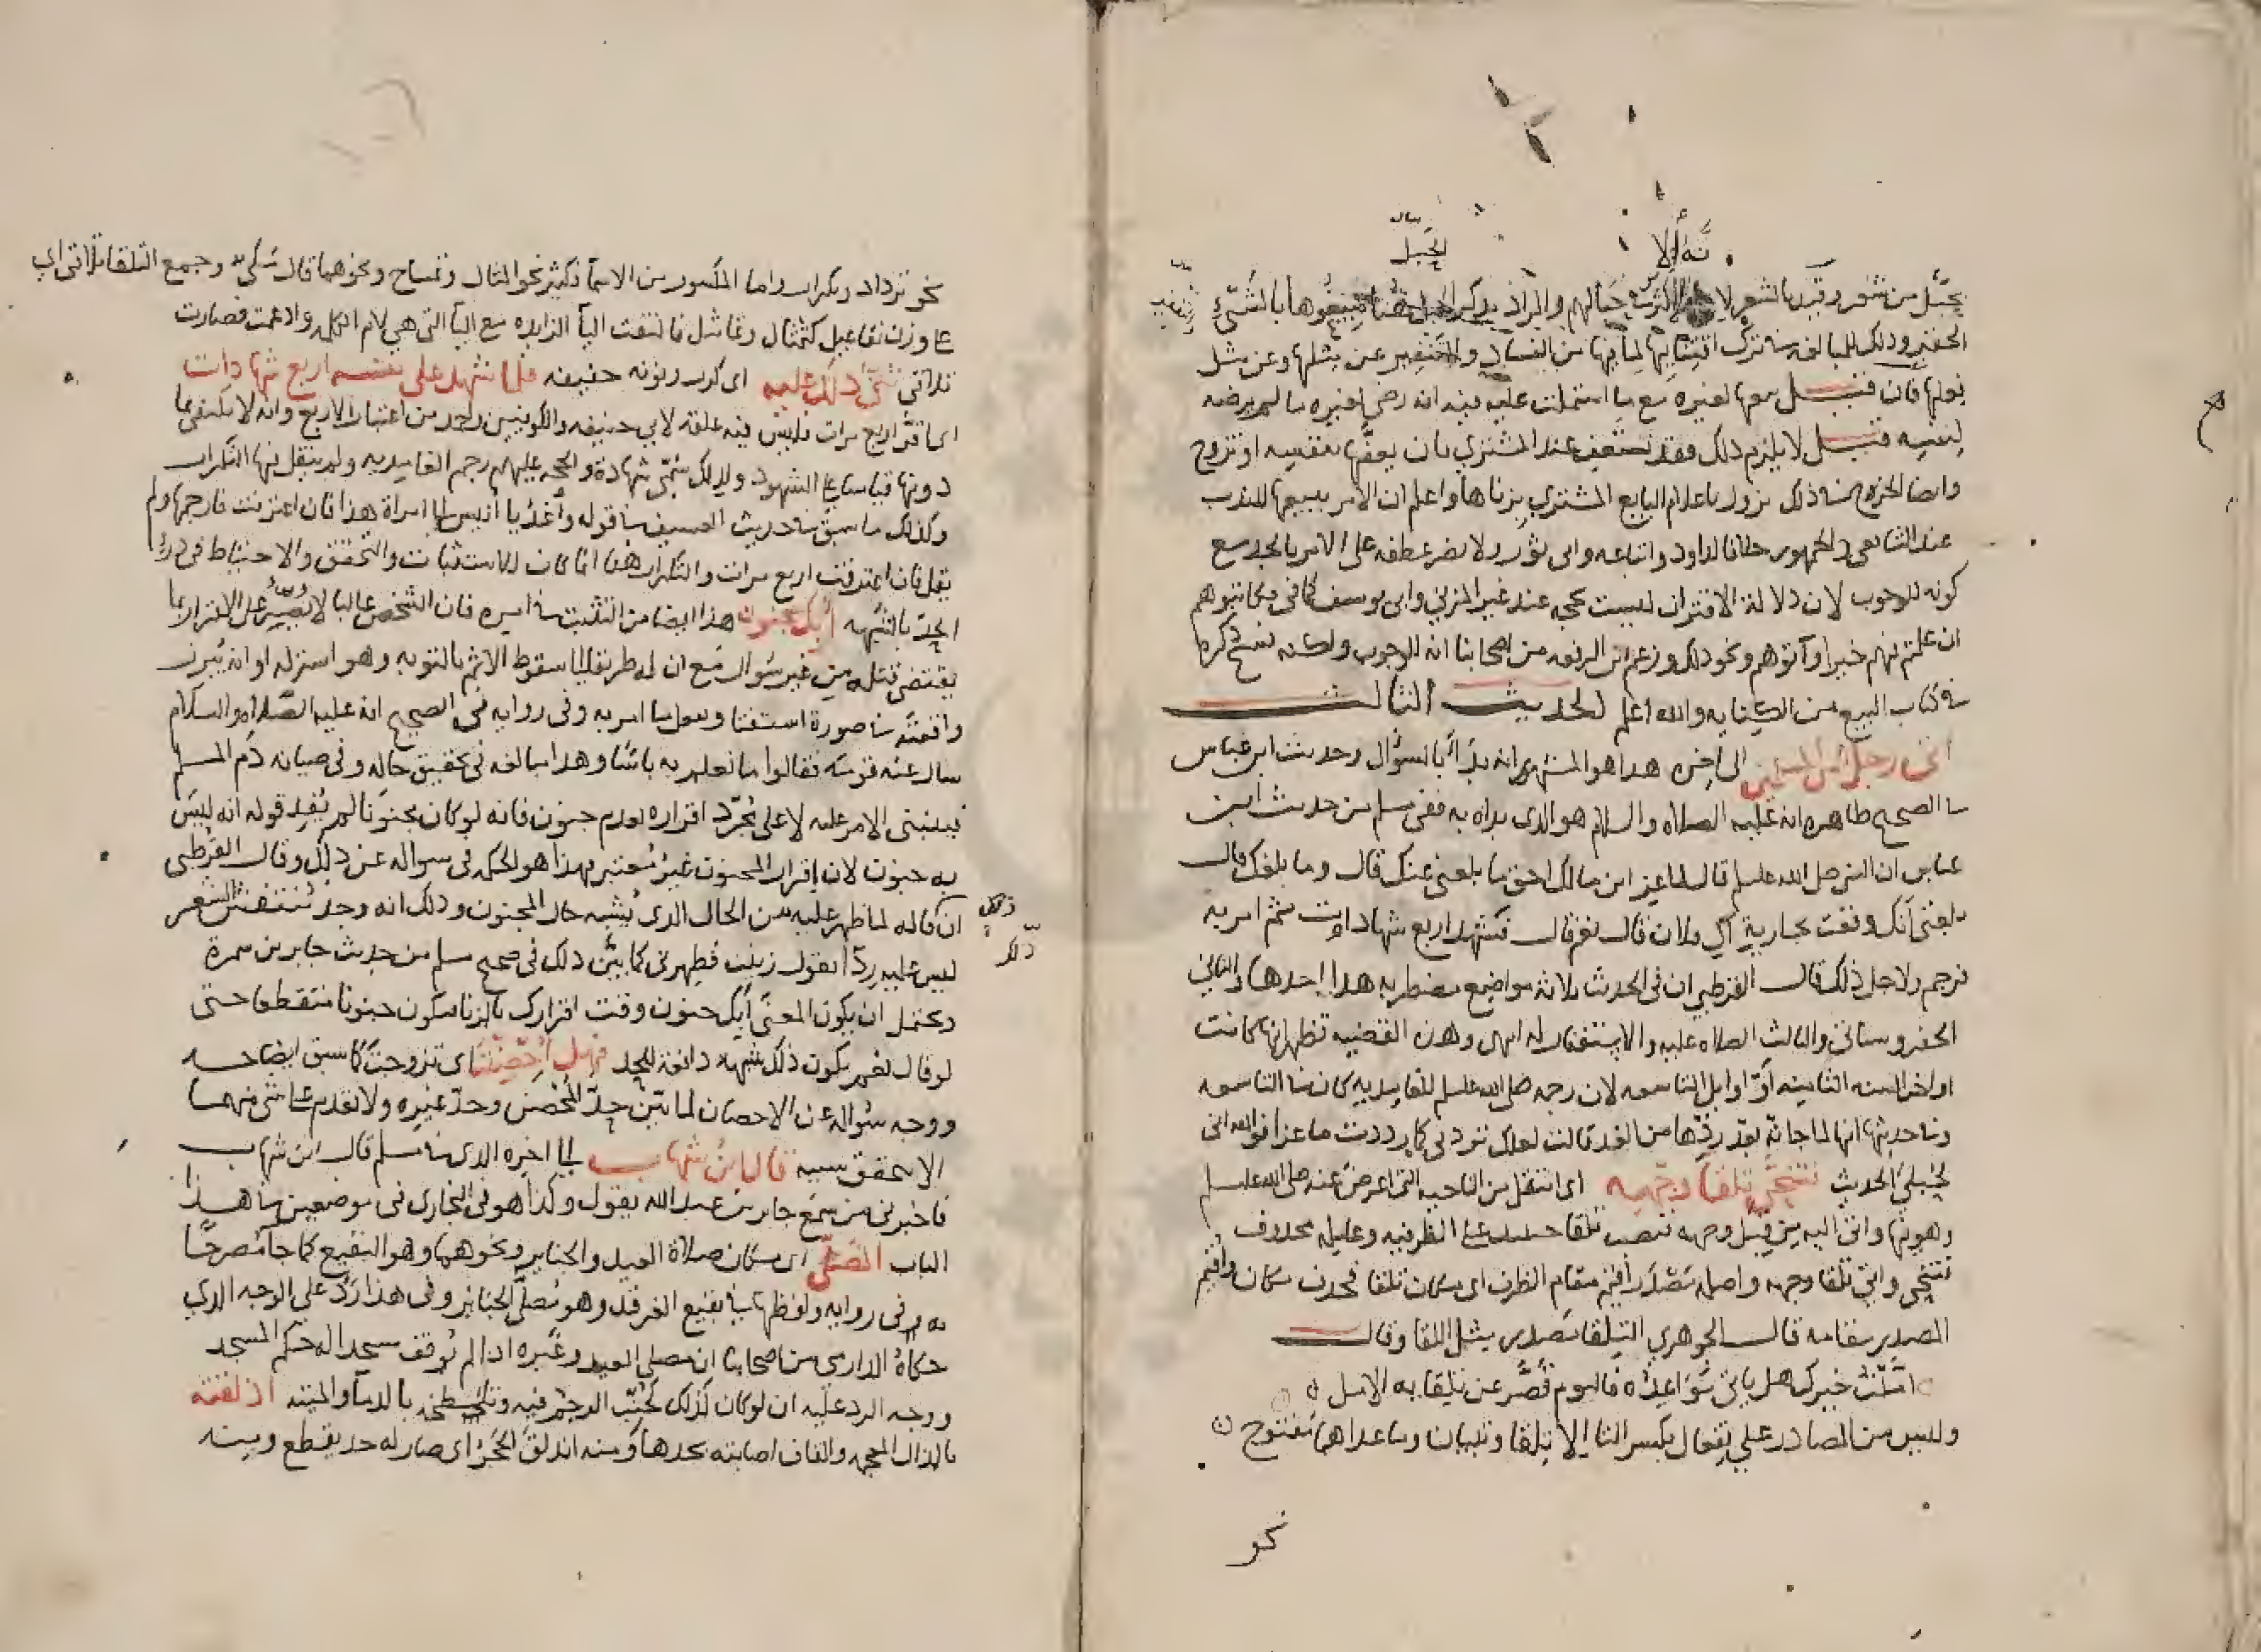 بحبل من شعر وقيد بالشعر لانه الاكثر في حبالهم والمراد بذكر الحبل هنا بيعوها بالشيء
الحقير وذلك للمبالغة في ترك اقتنايها لما فيها من الفساد والتنفير عن مثلها وعن مثل
فعلها فان قيل بيعها لغيره مع ما اشتملت عليه فيه انه رضي لغيره ما لم يرضه
لنفسه قيل لا يلزم ذلك فقد تستعف عند المشتري بان يعفها بنفسه او تزوج
وايضا الحرج في ذلك يزول باعلام البايع المشتري بزناها واعلم ان الامر ببيعها للندب
عند الشافعي والجمهور خلافا لداود واتباعه وابي ثور ولا يضر عطفه على الامر بالحد مع
كونه للوجوب لان دلالة الاقتران ليست بحجه عند غير المزني وابي يوسف كما في فكاتبوهم
ان علمتم فيهم خيرا وآتوهم ونحو ذلك وزعم ابن الرفعه من اصحابنا انه للوجوب ولكنه نسخ ذكره
في كتاب البيع من الكفايه والله اعلم الحديث الثالث
اتى رجل من المسلمين الى اخره هذا هو المشهور انه بدأ بالسؤال وحديث ابن عباس
في الصحيح ظاهره انه عليه الصلاه والسلام هو الذي بداه به ففي مسلم من حديث ابن
عباس ان النبي صلى الله عليه وسلم قال لماعز ابن مالك احق ما بلغني عنك قال وما بلغك قال
بلغني انك وقعت بجارية آل فلان قال نعم قال فشهد اربع شهادات ثم امر به
فرجم ولاجل ذلك قال القرطبي ان في الحديث ثلاثة مواضع مضطربه هذا احدها والثاني
الحفر وسياتي والثالث الصلاه عليه والاستغفار له انتهى وهذه القضيه تظهر انها كانت
اواخر السنه الثامنه أو اوايل التاسعه لان رجمه صلى الله عليه وسلم للغامديه كان في التاسعه
وفي حديثها انها لما جاته بعد ردها من الغد قالت لعلك تردني كما رددت ماعزا فوالله اني
لحبلى الحديث فتنحى تلقا وجهه اي انتقل من الناحيه التي اعرض عنه صلى الله عليه وسلم
وهو فيها واتى اليه من قبل وجهه نصب تلقا على الظرفيه وعامله محذوف
فتنحى واتى تلقا وجهه واصله مصدر أقيم مقام الظرف اي مكان تلقا فحذف مكان واقيم
المصدر مقامه قال الجوهري التلقا مصدر مثل اللقا وقال
امّلت خيرك هل ياتي مواعده فاليوم قصّر عن تلقايه الامل
وليس من المصادر على تِفعال بكسر التا الا تِلقا وتبيان وما عداهما مفتوح
نحو
نحو تَرداد وتكرار واما المكسور من الاسما فكثير نحو تمثال وتمساح ونحوهما قال مكي وجمع التلقا تلاقي اي
على وزن تفاعيل كتمثال وتماثيل فالتقت اليا الزايده مع اليا التي هي لام الكلمه وادغمت فصارت
تلاقي ثنّى ذلك عليه اي كرر ونونه خفيفه فلما شهد على نفسه اربع شهادات
اي اقر اربع مرات فليس فيه علقه لابي حنيفه والكوفيين واحمد من اعتبار الاربع وانه لا يكتفى بما
دونها قياسا على الشهود ولذلك سمى شهادة والحجه عليهم رجم الغامديه ولم ينقل فيها التكرار
وكذلك ما سبق في حديث العسيف في قوله وأغد يا أنيس الى امراة هذا فان اعترفت فارجمها ولم
يقل فان اعترفت اربع مرات والتكرار هنا انما كان للاستثبات والتحقق والاحتياط في درء
الحدّ بالشبهه أبك جنون هذا ايضا من التثبت في امره فان الشخص غالبا لا يُصِرُّ على الاقرار بما
يقتضي قتله من غير سؤال مع ان له طريقا الى سقوط الاثم بالتوبه وهو استزله او انه يُبرز
واقعته في صورة استفتا وعمل ما امر به وفي روايه في الصحيح انه عليه الصلاه والسلام
سال عنه قومه فقالوا ما نعلم به باسا وهذا مبالغه في تحقيق حاله وفي صيانه دم المسلم
فيبتني الامر عليه لا على مُجرّد اقراره بعدم جنون فانه لو كان مجنونا لم يُفِد قوله انه ليس
به جنون لان إقرار المجنون غير مُعتبر فهذا هو الحكم في سواله عن ذلك وقال القرطبي
ان ذلك قاله لما ظهر عليه من الحال الذي يُشبه حال المجنون وذلك انه وجد مُنتفش الشعر
ليس عليه ردآ يقول زنيت فطهرني كما بيّن ذلك في صحيح مسلم من حديث جابر بن سمرة
ويحتمل ان يكون المعنى أبك جنون وقت اقرارك بالزنا فيكون جنونا متقطعا حتى
لو قال نعم يكون ذلك شبهه دافعة للحد فهل أُحصِنتَ اي تزوجت كما سبق ايضاحه
ووجه سؤاله عن الاحصان لما بيّن حدّ المُحصَن وحدّ غيره ولا تقدم على شي منهما
الا بتحقق سببه قال ابن شهاب الى اخره الذي في مسلم قال ابن شهاب
فاخبرني من سمع جابر بن عبد الله يقول وكذا هو في البخاري في موضعين في هذا
الباب المُصلّى اي مكان صلاة العيد والجنايز ونحوهما وهو البقيع كما جآ مُصرحًا
به في روايه ولفظها في بقيع الغرقد وهو مُصلّى الجنايز وفي هذا ردٌ على الوجه الذي
حكاهُ الدارمي من اصحابنا ان مصلى العيد وغيره اذا لم يُوقف مسجدا له حكم المسجد
ووجه الرد عليه ان لو كان كذلك تُجُنّب الرجم فيه وتلطخه بالدمآ والميته اذلقته
بالذال المعجمه والقاف اصابته بحدها ومنه اندلق الحجر اي صار له حد يقطع ومنه